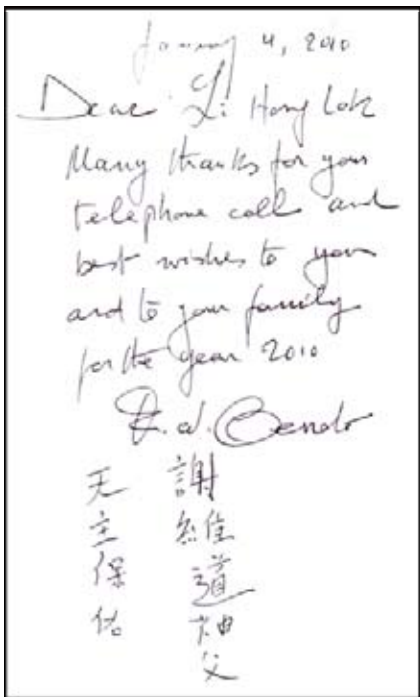 January 4, 2010
Dear Li Hong Lok
Many thanks for your
telephone call and
best wishes to you
and to your family
for the year 2010
謝維道神父
天主保佑